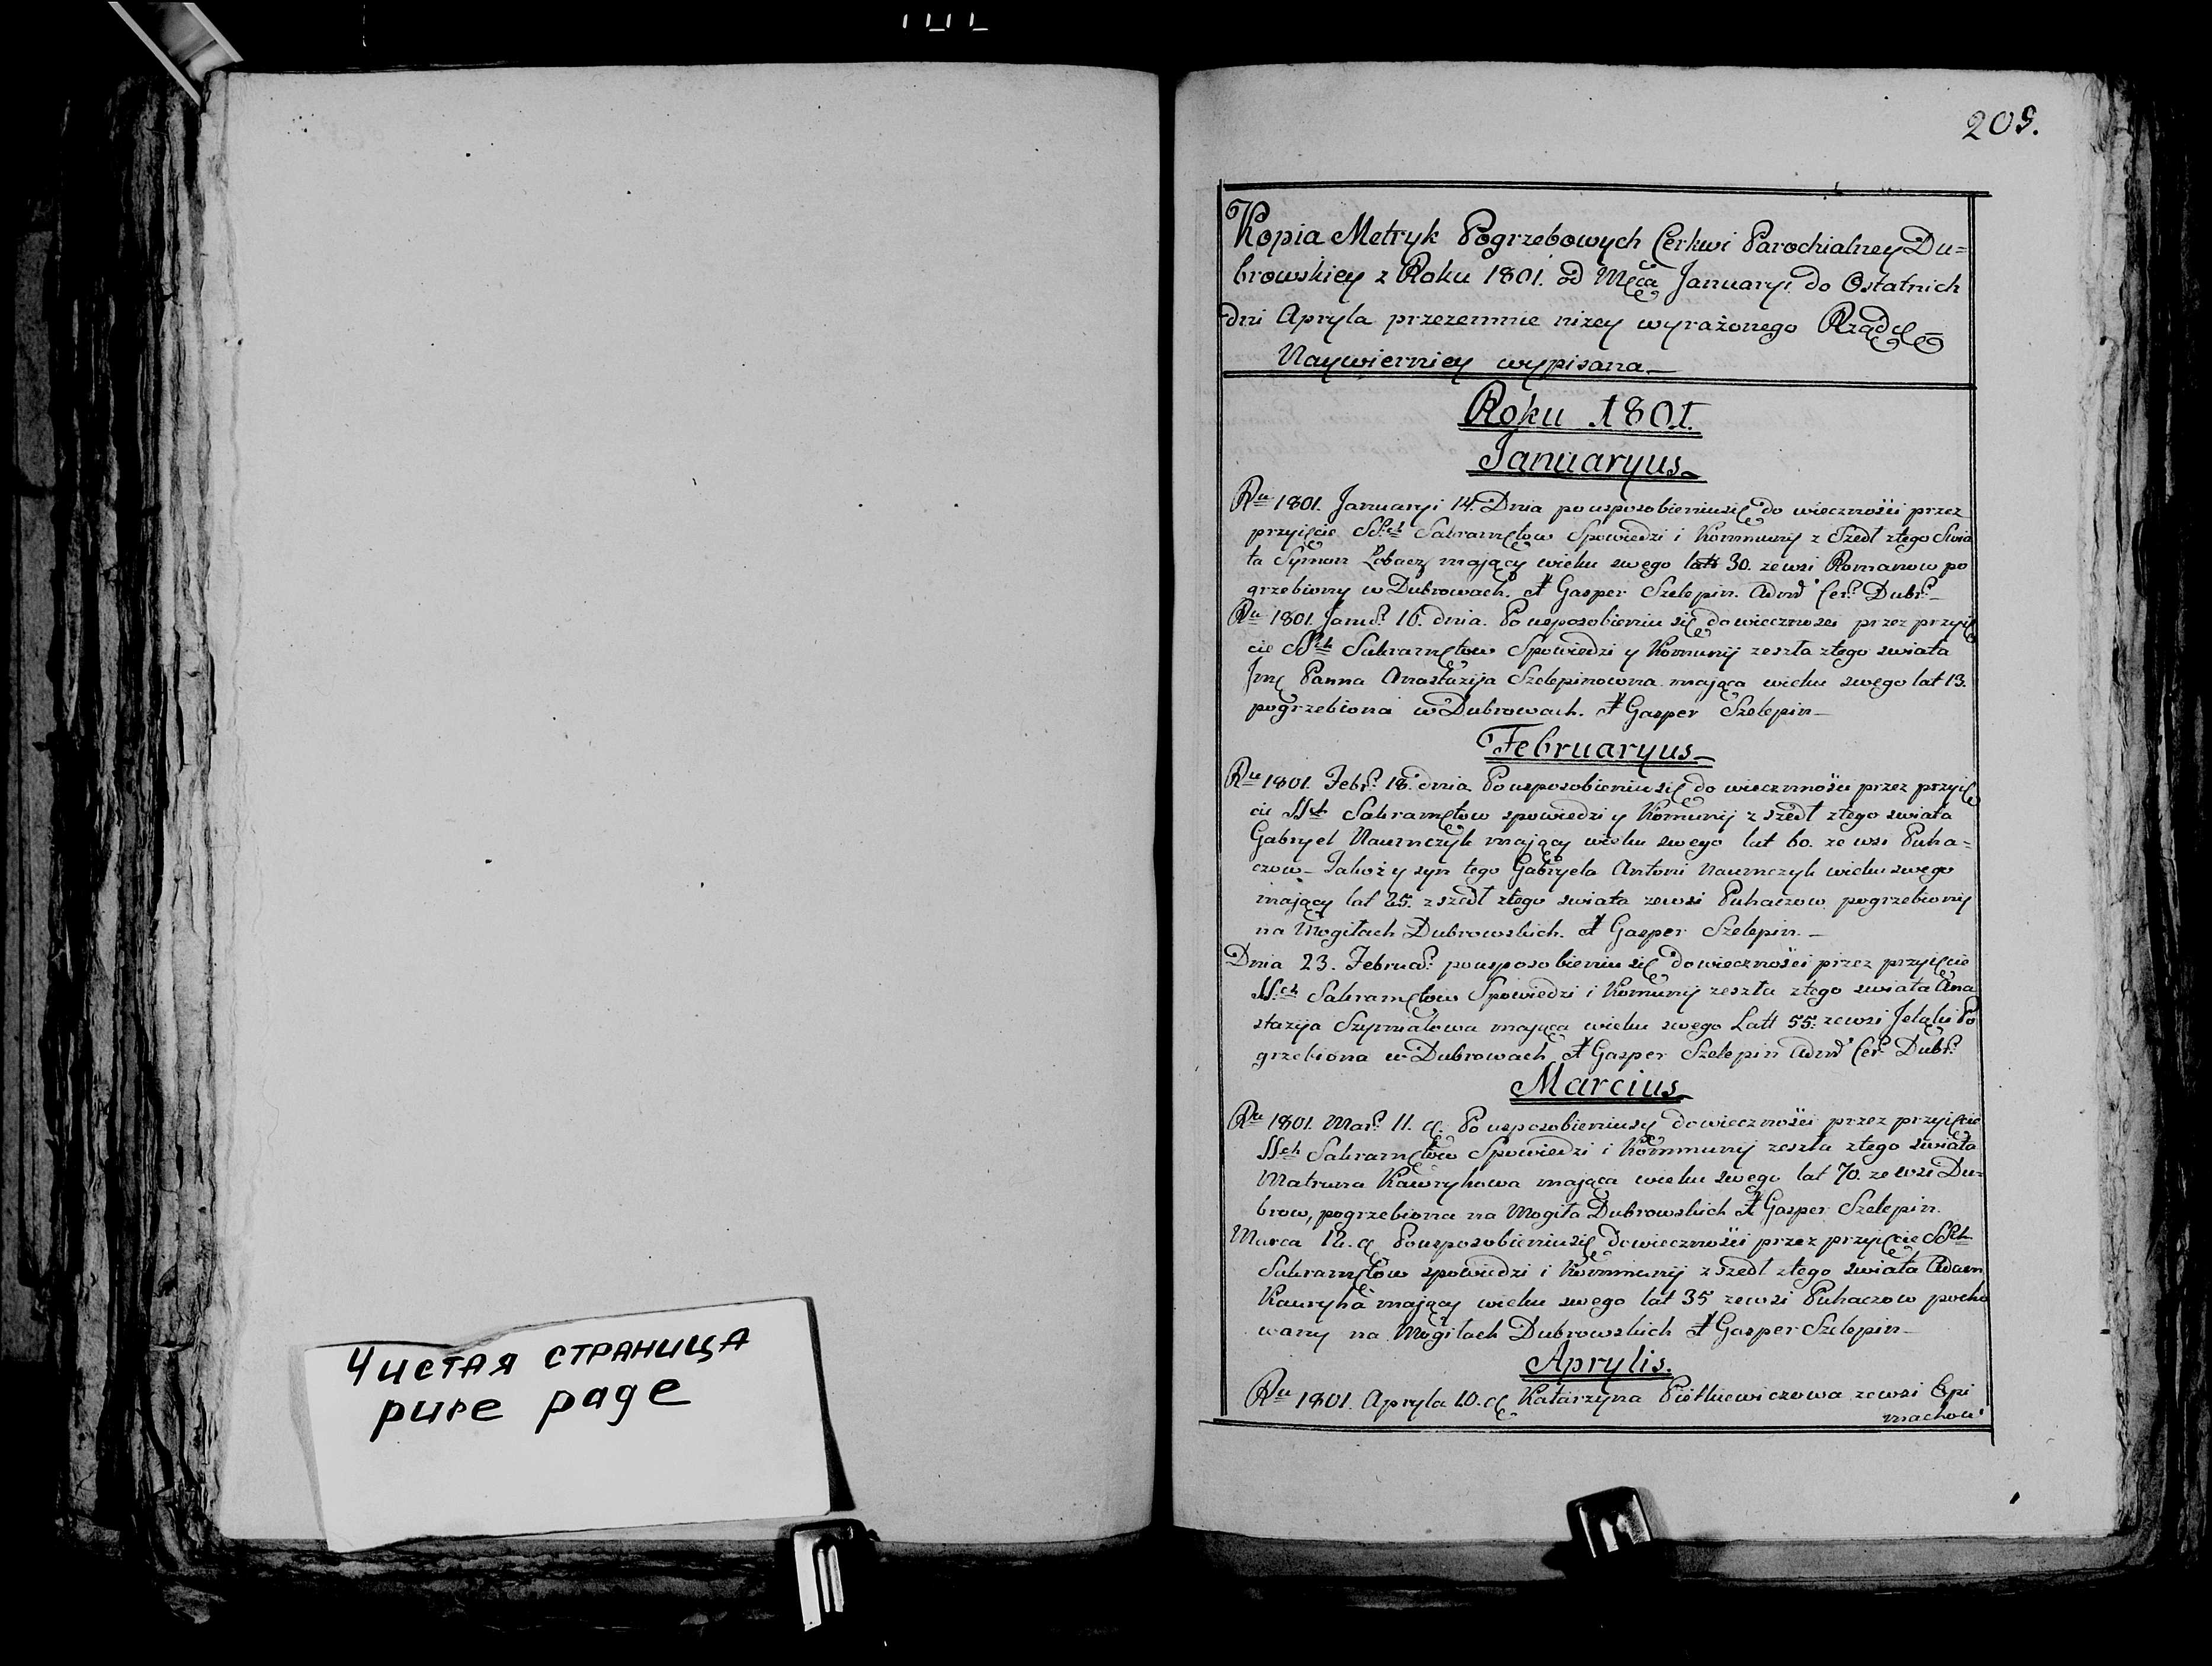 Чистая страница
pure page
209.
Kopia Metryk Pogrzebowych Cerkwi Parochialney Du=
browskiey z Roku 1801. od Mca Januaryi do Ostatnich
dni Apryla przezemnie nizey wyrażonego Rządcę
Naywierniey wypisana
Roku 1801.
Januaryus
Ru 1801. Januaryi 14. Dnia po usposobieniu się do wieczności przez
przyięcie SS.ch Sakramętow Spowiedzi i Kommunij z Szedł z tego Swia
ta Symon Lobacz mający wieku swego latt 30. ze wsi Romanow po
grzebiony w Dubrowach. X Gasper Szelepin. Admr Cer: Dubr:
Ru 1801. Janu: 16. dnia. Po usposobieniu się do wieczności przez przyię
cie SS.ch Sakramętow Spowiedzi y Komunij zeszła z tego swiata
Jmę Panna Anastazija Szelepinowna mająca wieku swego lat 13.
pogrzebiona w Dubrowach. X Gasper Szelepin
Februaryus
Ru 1801. Febr: 18. dnia Po usposobieniu się do wieczności przez przyię
cie SS.ch Sakramętow spowiedzi y Komunij z szedł z tego swiata
Gabryel Naumczyk mający wieku swego lat 60. ze wsi Puha=
czow Takoż y syn tego Gabryela Antoni Naumczyk wieku swego
mający lat 25. z szedł z tego swiata ze wsi Puhaczow pogrzebiony
na Mogiłach Dubrowskich. X Gasper Szelepin.
Dnia 23. Februa: po usposobieniu się do wieczności przez przyięcie
SS.ch Sakramętow Spowiedzi i Komunij zeszła z tego swiata Ana
stazija Szymialowa mająca wieku swego Latt 55. ze wsi Po
grzebiona w Dubrowach X Gasper Szelepin Admr Cer: Dubr:
Marcius
Ru 1801. Mar: 11. d. Po usposobieniu się do wieczności przez przyięcie
SS.ch Sakramętow Spowiedzi i Kommunij zeszła z tego swiata
Matruna Kawrykowa mająca wieku swego lat 70. ze wsi Du=
brow, pogrzebiona na Mogiła Dubrowskich X Gasper Szelepin.
Marca 12. d. Po usposobieniu się do wieczności przez przyięcie SS.ch
Sakramętow spowiedzi i Kommunij z szedł z tego swiata Adam
Kauryka mający wieku swego lat 35 ze wsi Puhaczow pocho
wany na Mogiłach Dubrowskich X Gasper Szelepin
Aprylis.
Ru 1801. Apryla 10. d. Katarzyna Pietkiewiczowa ze wsi Epi
machow